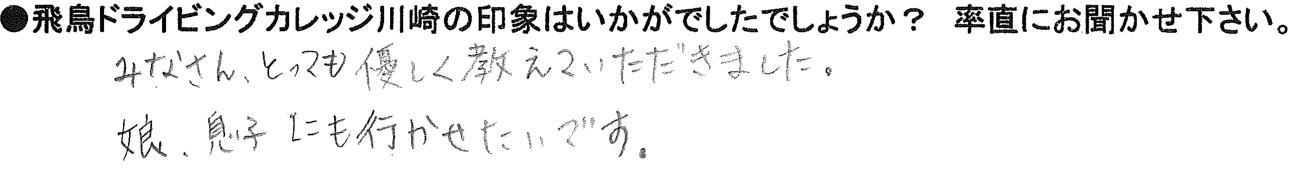 ●飛鳥ドライビングカレッジ川崎の印象はいかがでしたでしょうか？　率直にお聞かせ下さい。
みなさん、とっても優しく教えていただきました。
娘、息子にも行かせたいです。